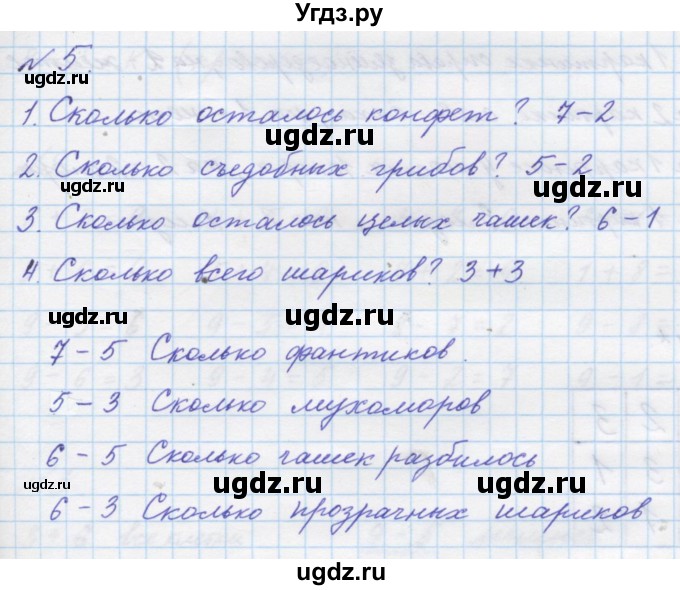 Угдз.ру
№ 5
1. Сколько осталось конфет? 7-2
2. Сколько съедобных грибов? 5-2
3. Сколько осталось целых чашек? 6-1
4. Сколько всего шариков? 3+3
7-5 Сколько фантиков.
5-3 Сколько мухоморов
6-5 Сколько чашек разбилось
6-3 Сколько прозрачных шариков
ugdz.ru
ugdz.ru
ugdz.ru
ugdz.ru
ugdz.ru
ugdz.ru
ugdz.ru
ugdz.ru
ugdz.ru
ugdz.ru
ugdz.ru
ugdz.ru
ugdz.ru
ugdz.ru